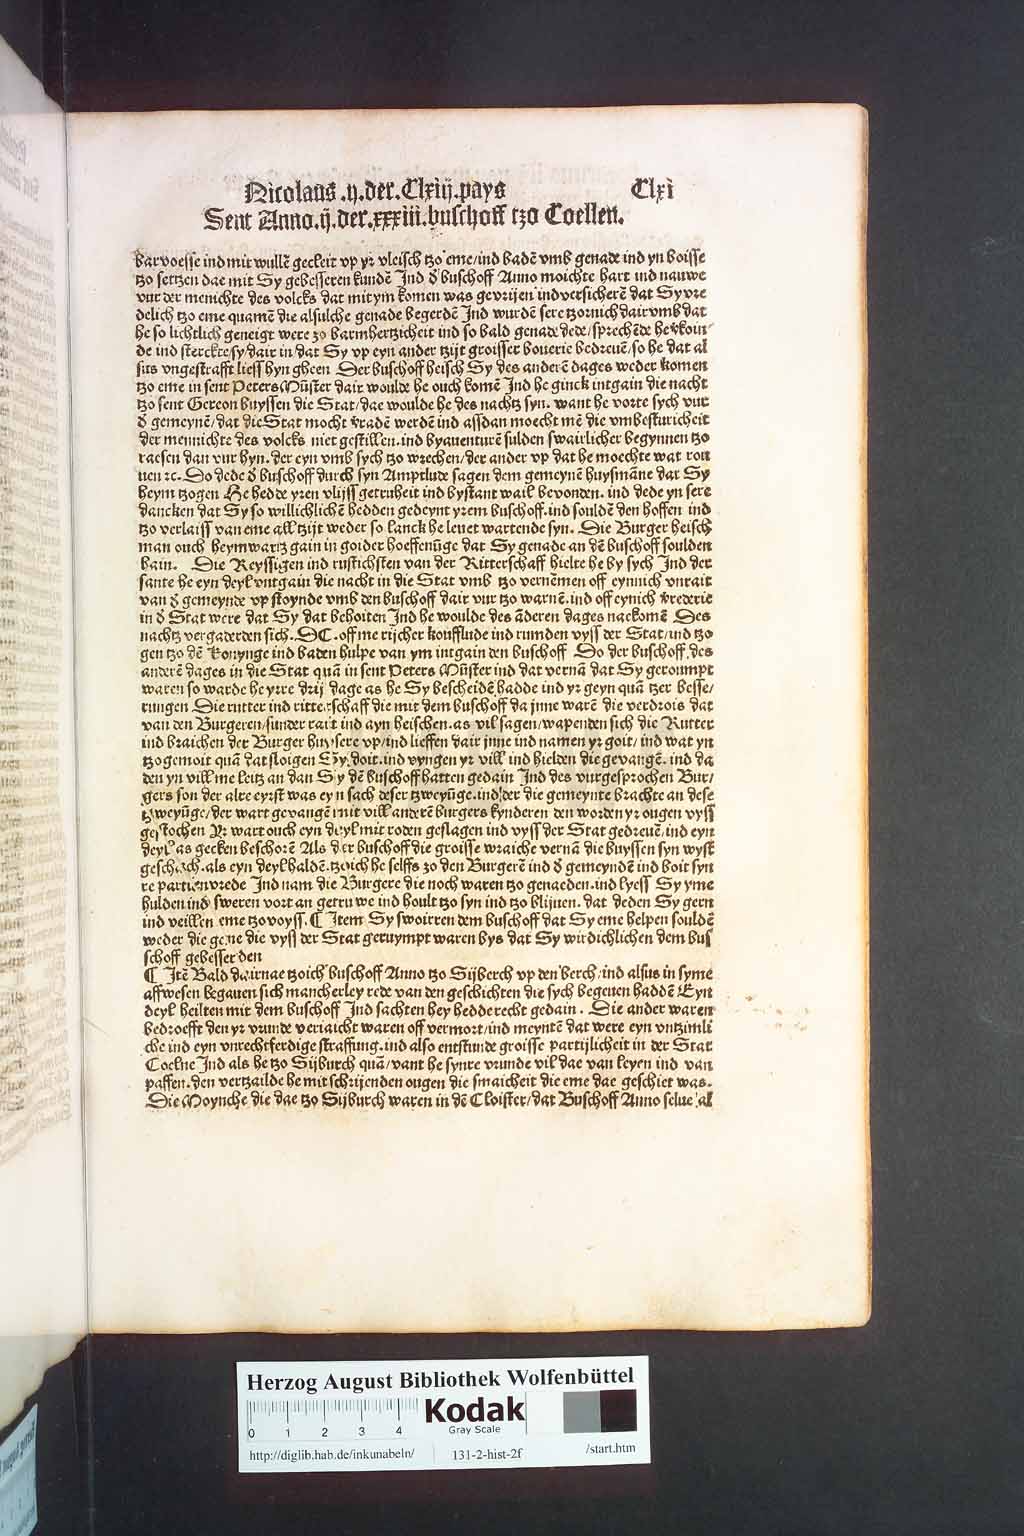 Nicolaus .ij. der. Clxiij. pays Clxi
Sent Anno. ij. der. xxxiii. buschoff tzo Coellen.
barvoesse ind mit wullē gecleit vp yr vleisch tzo eme/ind badē vmb genade ind yn boisse
tzo settzen dae mit Sy gebesseren kundē Ind d' buschoff Anno moichte hart ind nauwe
vur der menichte des volcks dat mit ym komen was gevrijen ind versicherē dat Sy vre
delich tzo eme quamē die alsulche genade begerdē Ind wurdē sere tzornich dair vmb dat
he so lichtlich geneigt were zo barmhertzicheit ind so bald genade dede/sprechēde he v'koin
de ind sterckte sy dair in dat Sy vp eyn ander tzijt groisser bouerie bedreuē/so he dat al
sus vngestrafft liess hyn gheen Der buschoff heisch Sy des anderē dages weder komen
tzo eme in sent Peters Mūster dair woulde he ouch komē Ind he ginck intgain die nacht
tzo sent Gereon buyssen die Stat/dae woulde he des nachtz syn. want he vorte sych vur
d' gemeynē/dat die Stat mocht v'radē werdē ind assdan moecht mē die vmbesturicheit
der mennichte des volcks niet gestillen. ind by auenturē sulden swairlicher begynnen tzo
raesen dan vur hyn. der eyn vmb sych tzo wrechen/der ander vp dat he moechte wat rou
uen ꝛc. Do dede d' buschoff durch syn Amptlude sagen dem gemeynē huysmāne dat Sy
heym tzogen He hedde yren vlijss getruheit ind bystant wail bevonden. ind dede yn sere
dancken dat Sy so willichlichē hedden gedeynt yrem buschoff. ind souldē den hoffen ind
tzo verlaiss van eme all tzijt weder so lanck he leuet wartende syn. Die Burger heisch
man ouch heymwartz gain in goider hoeffenūge dat Sy genade an dē buschoff soulden
hain. Die Reyssigen ind rustichsten van der Ritterschaff hielte he by sych Ind der
sante he eyn deyl vntgain die nacht in die Stat vmb tzo vernemen off eynnich vnrait
van d' gemeynde vp stoynde vmb den buschoff dair vur tzo warnē. ind off eynich v'rederie
in d' Stat were dat Sy dat behoiten Ind he woulde des āderen dages nackomē Des
nachtz vergaderden sich. DC. off me rijcher koufflude ind rumden vyss der Stat/ind tzo
gen tzo dē Konynge ind baden hulpe van ym intgain den buschoff Do der buschoff des
anderē dages in die Stat quā in sent Peters Mūster ind dat vernā dat Sy geroumpt
waren so warde he yrre drij dage as he Sy bescheidē hadde ind yr geyn quā tzer besse/
rungen Die rutter ind ritterschaff die mit dem buschoff da jnne warē die verdrois dat
van den Burgeren/sunder rait ind ayn heischen. as vil sagen/wapenden sich die Rutter
ind braichen der Burger huysere vp/ind lieffen dair jnne ind namen yr goit/ind wat yn
tzogemoit quā dat sloigen Sy doit. ind vyngen yr vill ind hielden die gevangē. ind da
den yn vill me leitz an dan Sy dē buschoff hatten gedain Ind des vurgesprochen Bur/
gers son der alre eyrst was eyn sach deser tzweyūge. ind der die gemeynte brachte an dese
tzweyūge/der wart gevangē mit vill anderē burgers kynderen den worden yr ougen vyss
gestochen Yr wart ouch eyn deyl mit roden geslagen ind vyss der Stat gedreuē. ind eyn
deyl as gecken beschorē Als der buschoff die groisse wraiche vernā die buyssen syn wyst
geschach. als eyn deyl haldē. tzoich he selffs zo den Burgerē ind d' gemeyndē ind boit syn
re partien vrede Ind nam die Burgere die noch waren tzo genaeden. ind lyess Sy yme
hulden ind sweren vort an getruwe ind hoult tzo syn ind tzo blijuen. dat deden Sy gern
ind veillen eme tzo voyss. ¶ Item Sy swoirren dem buschoff dat Sy eme helpen souldē
weder die gene die vyss der Stat geruympt waren bys dat Sy wirdichlichen dem bus
schoff gebesserden
¶ Itē Bald dairnae tzoich buschoff Anno tzo Sijberch vp den berch/ind alsus in symē
affwesen begauen sich mancherley rede van den geschichten die sych begeuen haddē Eyn
deyl heilten mit dem buschoff Ind sachten hey hedde recht gedain. Die ander waren
bedroefft den yr vrunde veriaicht waren off vermort/ind meyntē dat were eyn vntzimli
che ind eyn vnrechtferdige straffung. ind also entstunde groisse partijlicheit in der Stat
Coelne Ind als he tzo Sijburch quā/vant he synre vrunde vil dae van leyen ind van
paffen. den vertzailde he mit schrijenden ougen die smaicheit die eme dae geschiet was.
Die Moynche die dae tzo Sijburch waren in dē Cloister/dat Buschoff Anno selue al
Herzog August Bibliothek Wolfenbüttel
0 1 2 3 4
Kodak
Gray Scale
http://diglib.hab.de/inkunabeln/ 131-2-hist-2f /start.htm